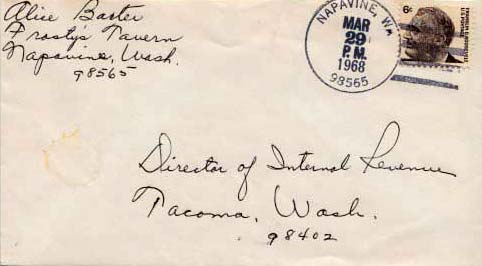 Alice Baster
Frosty's Tavern
Napavine, Wash.
98565
NAPAVINE, WA
MAR
29
P.M.
1968
98565
6¢
Director of Internal Revenue
Tacoma, Wash.
98402